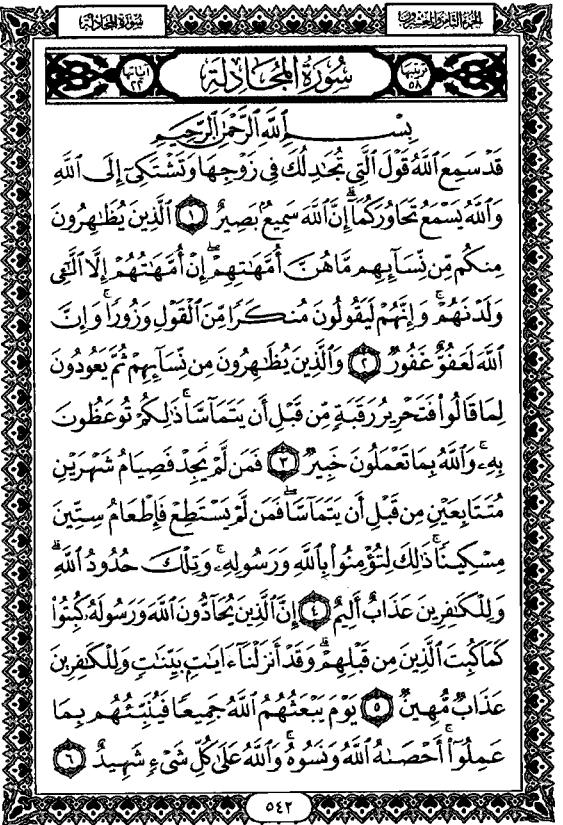 الجزء الثامن والعشرون
سُورَةُ المُجَادلة
ترتيبها ٥٨
سُورَةُ المُجَادلَةِ
آياتها ٢٢
بِسْمِ ٱللَّهِ ٱلرَّحْمَٰنِ ٱلرَّحِيمِ
قَدْ سَمِعَ ٱللَّهُ قَوْلَ ٱلَّتِى تُجَٰدِلُكَ فِى زَوْجِهَا وَتَشْتَكِىٓ إِلَى ٱللَّهِ
وَٱللَّهُ يَسْمَعُ تَحَاوُرَكُمَآ ۚ إِنَّ ٱللَّهَ سَمِيعٌۢ بَصِيرٌ ١ ٱلَّذِينَ يُظَٰهِرُونَ
مِنكُم مِّن نِّسَآئِهِم مَّا هُنَّ أُمَّهَٰتِهِمْ ۖ إِنْ أُمَّهَٰتُهُمْ إِلَّا ٱلَّٰٓـِٔى
وَلَدْنَهُمْ ۚ وَإِنَّهُمْ لَيَقُولُونَ مُنكَرًا مِّنَ ٱلْقَوْلِ وَزُورًا ۚ وَإِنَّ
ٱللَّهَ لَعَفُوٌّ غَفُورٌ ٢ وَٱلَّذِينَ يُظَٰهِرُونَ مِن نِّسَآئِهِمْ ثُمَّ يَعُودُونَ
لِمَا قَالُوا۟ فَتَحْرِيرُ رَقَبَةٍ مِّن قَبْلِ أَن يَتَمَآسَّا ۚ ذَٰلِكُمْ تُوعَظُونَ
بِهِۦ ۚ وَٱللَّهُ بِمَا تَعْمَلُونَ خَبِيرٌ ٣ فَمَن لَّمْ يَجِدْ فَصِيَامُ شَهْرَيْنِ
مُتَتَابِعَيْنِ مِن قَبْلِ أَن يَتَمَآسَّا ۖ فَمَن لَّمْ يَسْتَطِعْ فَإِطْعَامُ سِتِّينَ
مِسْكِينًا ۚ ذَٰلِكَ لِتُؤْمِنُوا۟ بِٱللَّهِ وَرَسُولِهِۦ ۚ وَتِلْكَ حُدُودُ ٱللَّهِ ۗ
وَلِلْكَٰفِرِينَ عَذَابٌ أَلِيمٌ ٤ إِنَّ ٱلَّذِينَ يُحَآدُّونَ ٱللَّهَ وَرَسُولَهُۥ كُبِتُوا۟
كَمَا كُبِتَ ٱلَّذِينَ مِن قَبْلِهِمْ ۚ وَقَدْ أَنزَلْنَآ ءَايَٰتٍۭ بَيِّنَٰتٍ ۚ وَلِلْكَٰفِرِينَ
عَذَابٌ مُّهِينٌ ٥ يَوْمَ يَبْعَثُهُمُ ٱللَّهُ جَمِيعًا فَيُنَبِّئُهُم بِمَا
عَمِلُوٓا۟ ۚ أَحْصَىٰهُ ٱللَّهُ وَنَسُوهُ ۚ وَٱللَّهُ عَلَىٰ كُلِّ شَىْءٍ شَهِيدٌ ٦
٥٤٢